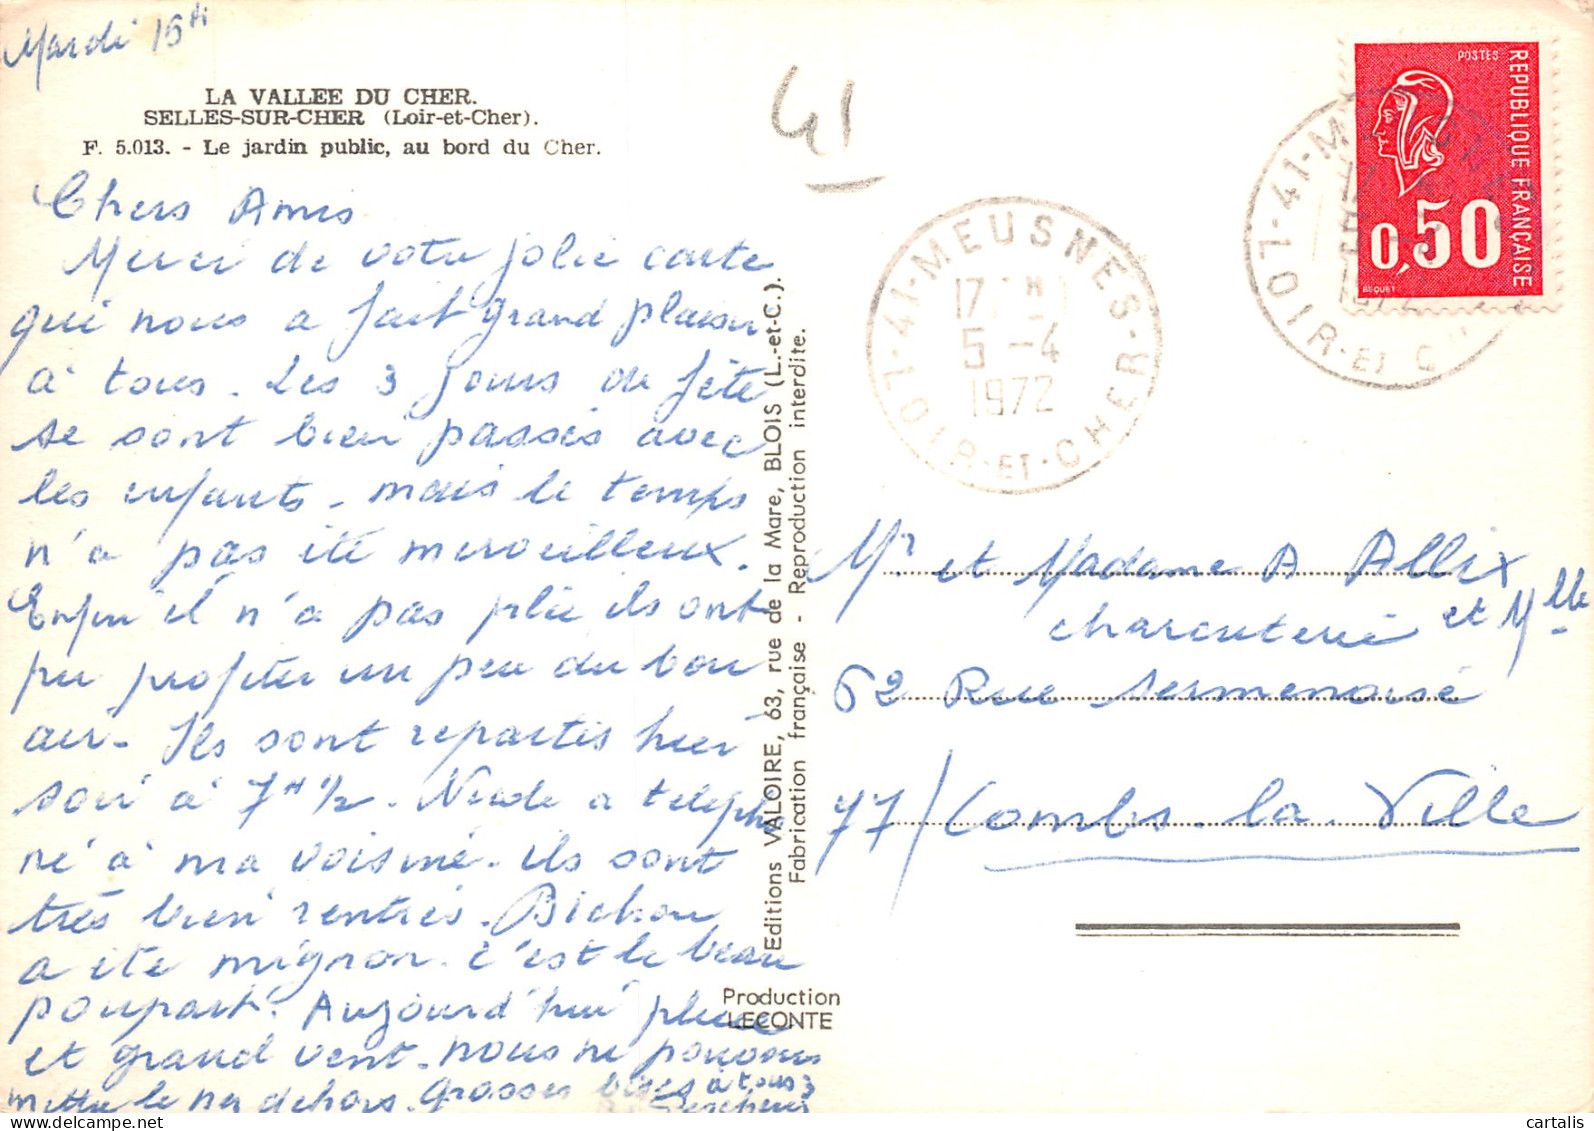 Mardi 15h
LA VALLEE DU CHER.
SELLES-SUR-CHER (Loir-et-Cher).
F. 5.013. - Le jardin public, au bord du Cher.
Chers Amis
Merci de votre jolie carte
qui nous a fait grand plaisir
à tous. Les 3 jours de fête
se sont bien passés avec
les enfants. mais le temps
n'a pas été merveilleux.
Enfin il n'a pas plu ils ont
pu profiter un peu du bon
air. Ils sont repartis hier
soir à 7H 1/2. a téléphó
né à ma voisine. ils sont
très bien rentrés. Bichon
a été mignon. c'est le beau
poupart. Aujourd'hui pluie
et grand vent. nous ne pouvons
mettre le nez dehors. grosses bises à tous 3
Editions VALOIRE, 63, rue de la Mare, BLOIS (L.-et-C.).
Fabrication française - Reproduction interdite.
Production
LECONTE
41
41-MEUSNES-
LOIR-ET-CHER
17H
5 -4
1972
POSTES
REPUBLIQUE FRANÇAISE
0,50
BEQUET
41-M
LOIR-ET-C
Mr et Madame A Allix
charcuterie et Mlle
62 Rue Sermenoise
77/Combs-la-Ville
cartalis
www.delcampe.net